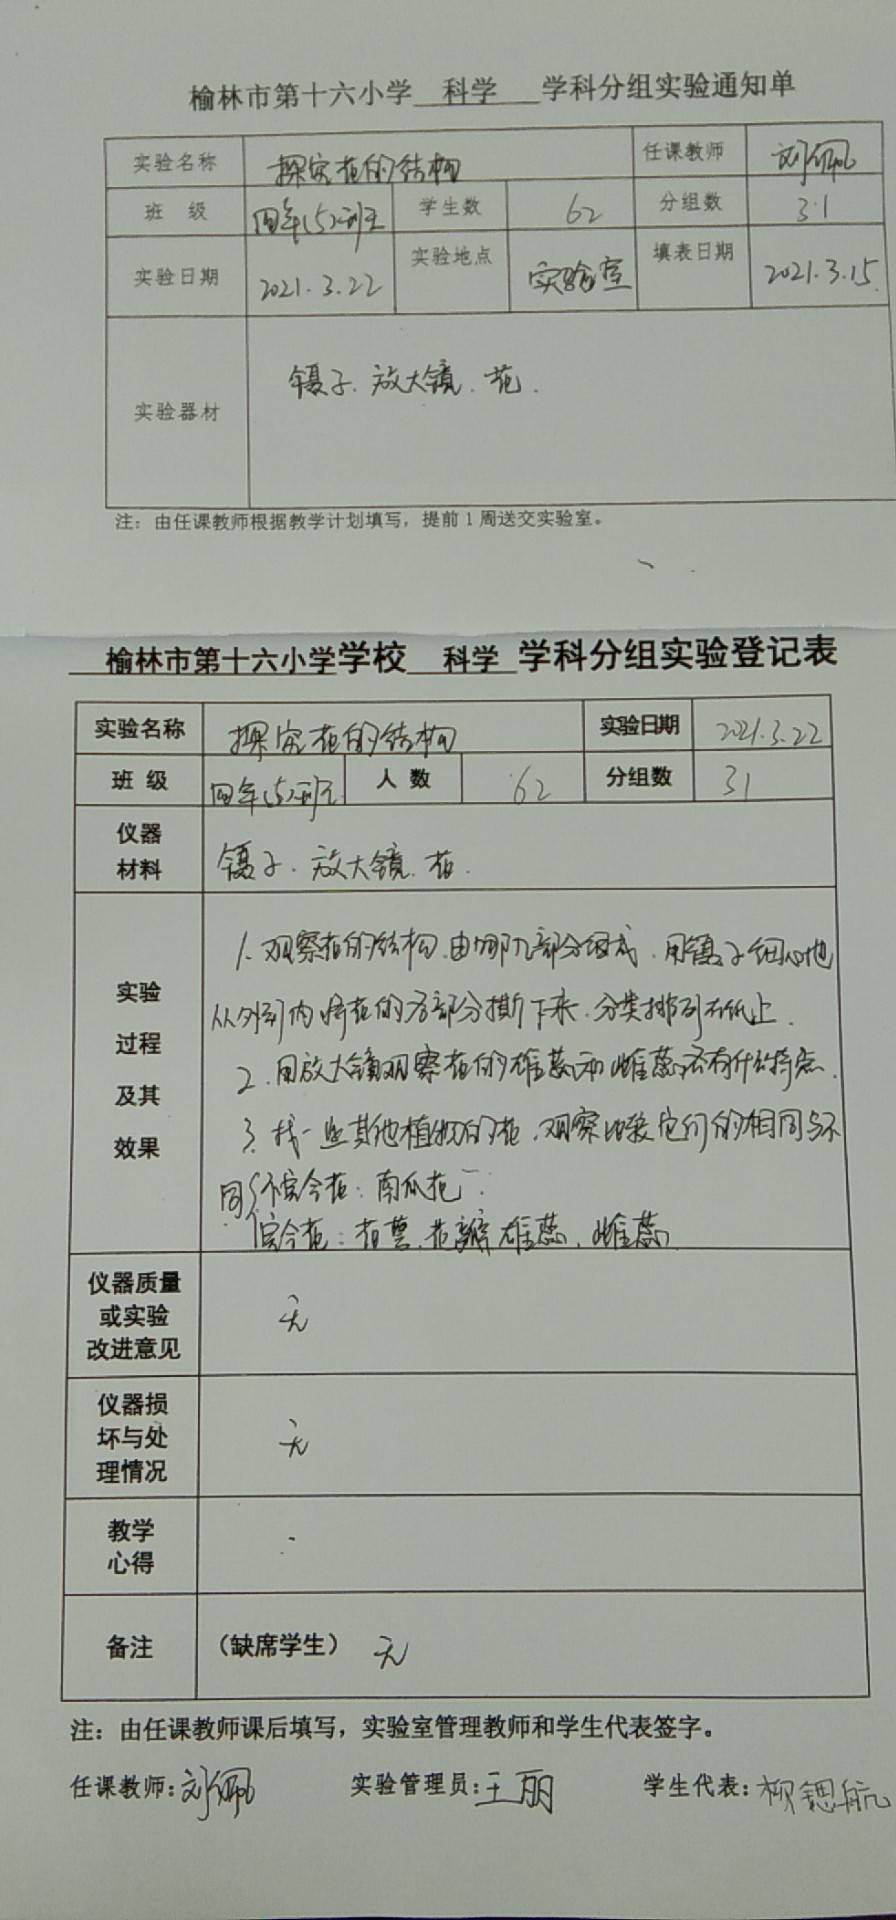 榆林市第十六小学 科学 学科分组实验通知单
实验名称 探究花的结构 任课教师 刘佩
班 级 四年(5)班 学生数 62 分组数 31
实验日期 2021.3.22 实验地点 实验室 填表日期 2021.3.15
实验器材 镊子、放大镜、花.
注：由任课教师根据教学计划填写，提前1周送交实验室。
榆林市第十六小学学校 科学 学科分组实验登记表
实验名称 探究花的结构 实验日期 2021.3.22
班 级 四年(5)班 人 数 62 分组数 31
仪器
材料
镊子、放大镜、花.
实验
过程
及其
效果
1、观察花的结构，由哪几部分组成，用镊子细心地
从外到内将花的各部分撕下来，分类排列在纸上.
2、用放大镜观察花的雄蕊和雌蕊，各有什么特点.
3、找一些其他植物的花，观察比较它们的相同与不
同 不完全花：南瓜花
完全花：花萼、花瓣、雄蕊、雌蕊
仪器质量
或实验
改进意见
无
仪器损
坏与处
理情况
无
教学
心得
备注 （缺席学生） 无
注：由任课教师课后填写，实验室管理教师和学生代表签字。
任课教师：刘佩 实验管理员：王丽 学生代表：柳锶航